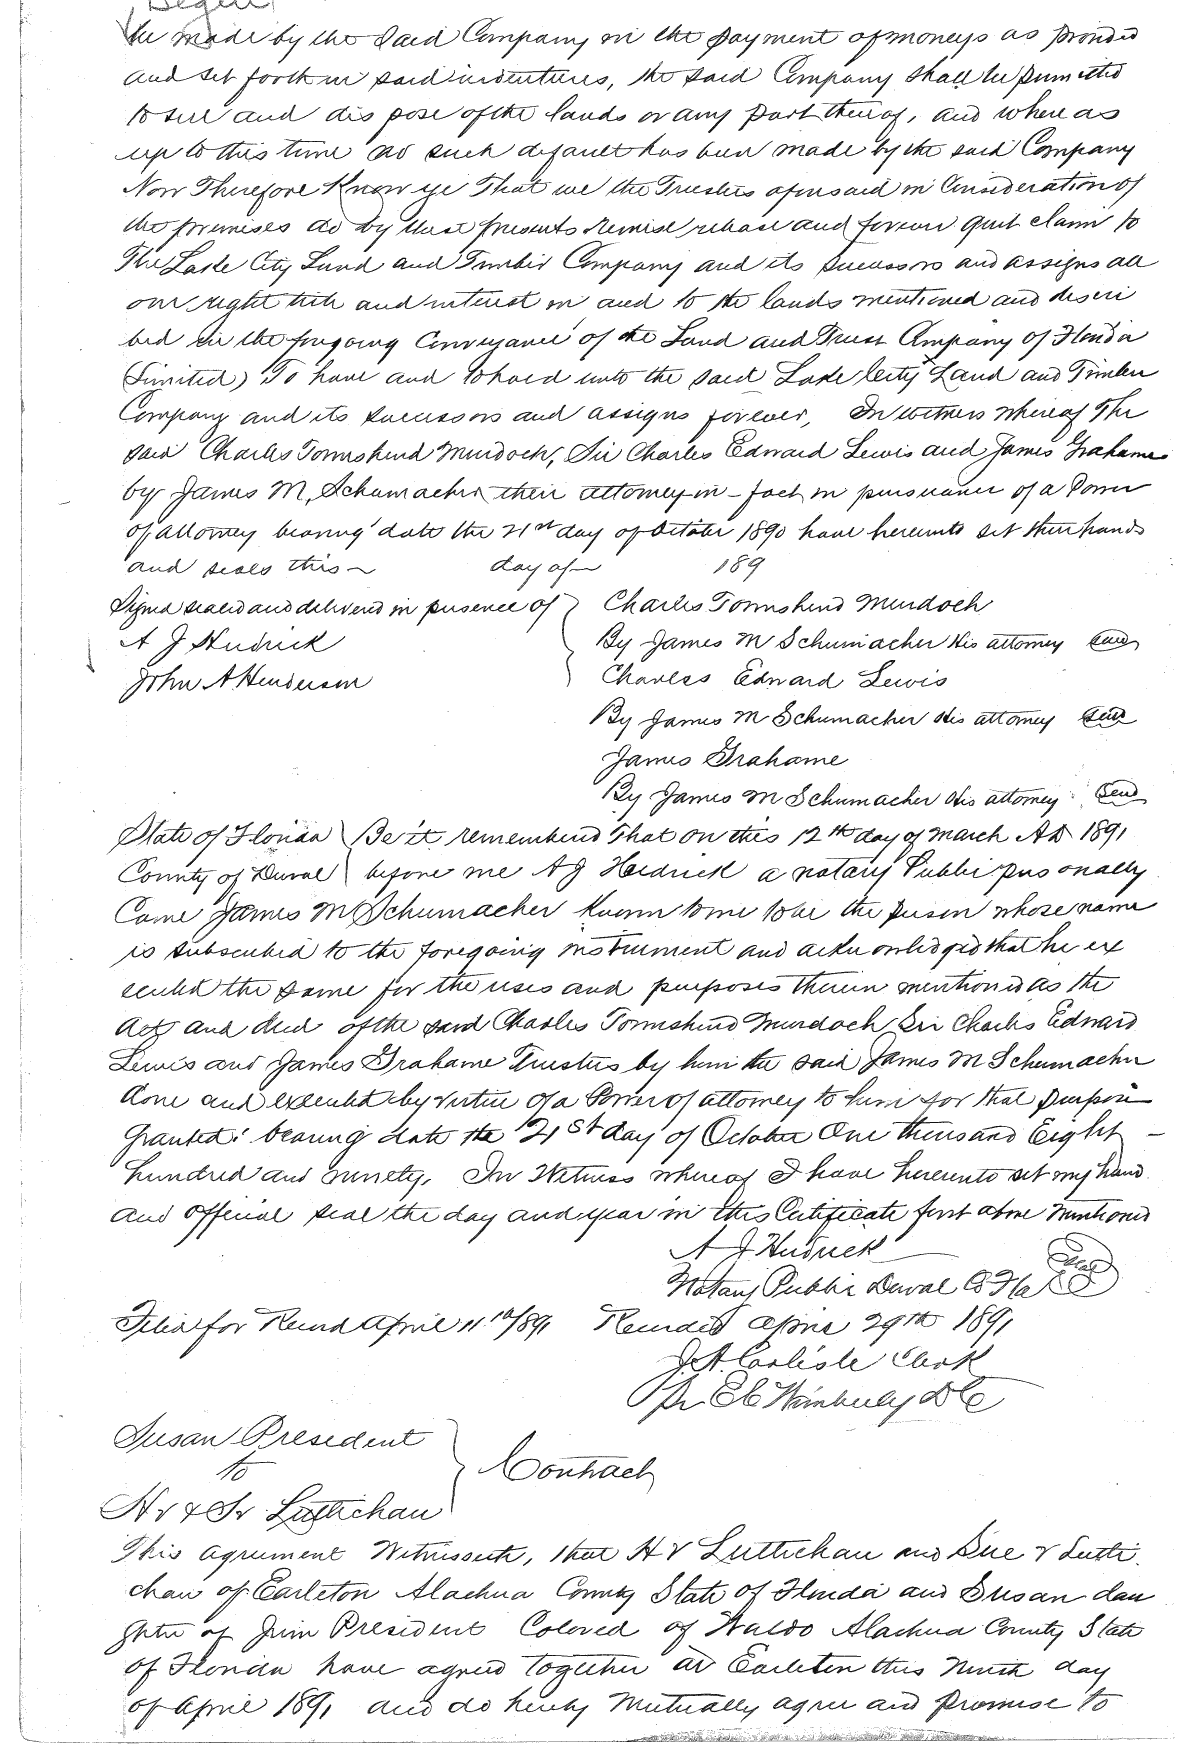 be made by the said Company in the payment of moneys as provided
and set forth in said indentures, the said Company shall be permitted
to sell and dispose of the lands or any part thereof, and whereas
up to this time no such default has been made by the said Company
Now Therefore Know ye That we the Trustees aforesaid in Consideration of
the premises do by these presents remise release and forever quit claim to
The Lake City Land and Timber Company and its successors and assigns all
our right title and interest in and to the lands mentioned and descri
bed in the foregoing Conveyance of the Land and Trust Company of Florida
(Limited) To have and to hold unto the said Lake City Land and Timber
Company and its successors and assigns forever, In witness whereof The
said Charles Townshend Murdoch, Sir Charles Edward Lewis and James Grahame
by James M. Schumacher their attorney in-fact in pursuance of a Power
of attorney bearing date the 21st day of October 1890 have hereunto set their hands
and seals this day of 189
Signed sealed and delivered in presence of } Charles Townshend Murdoch
A J Hedrick By James M Schumacher His attorney Seal
John A Henderson Charles Edward Lewis
By James M Schumacher His attorney Seal
James Grahame
By James M Schumacher His attorney Seal
State of Florida } Be it remembered That on this 12th day of March AD 1891
County of Duval } before me A J Hedrick a notary Public personally
Came James M Schumacher known to me to be the person whose name
is subscribed to the foregoing instrument and acknowledged that he ex
ecuted the same for the uses and purposes therein mentioned as the
Act and deed of the said Charles Townshend Murdoch Sir Charles Edward
Lewis and James Grahame Trustees by him the said James M Schumacher
done and executed by virtue of a Power of attorney to him for that purpose
granted bearing date the 21st day of October One thousand Eight
hundred and ninety. In Witness whereof I have hereunto set my hand
and official seal the day and year in this Certificate first above mentioned
A J Hedrick
Notary Public Duval Co Fla Seal
Filed for Record April 11th/891 Recorded April 29th 1891
J.A. Carlisle Clerk
Pr E C Wimberly DC
Susan President
to } Contract
Hv & Sv Luttichau
This agreement Witnesseth, that H v Luttichau and Sue v Lutti
chau of Earleton Alachua County State of Florida and Susan dau
ghter of Jim President Colored of Waldo Alachua County State
of Florida have agreed together at Earleton this Ninth day
of April 1891 and do hereby Mutually agree and Promise to